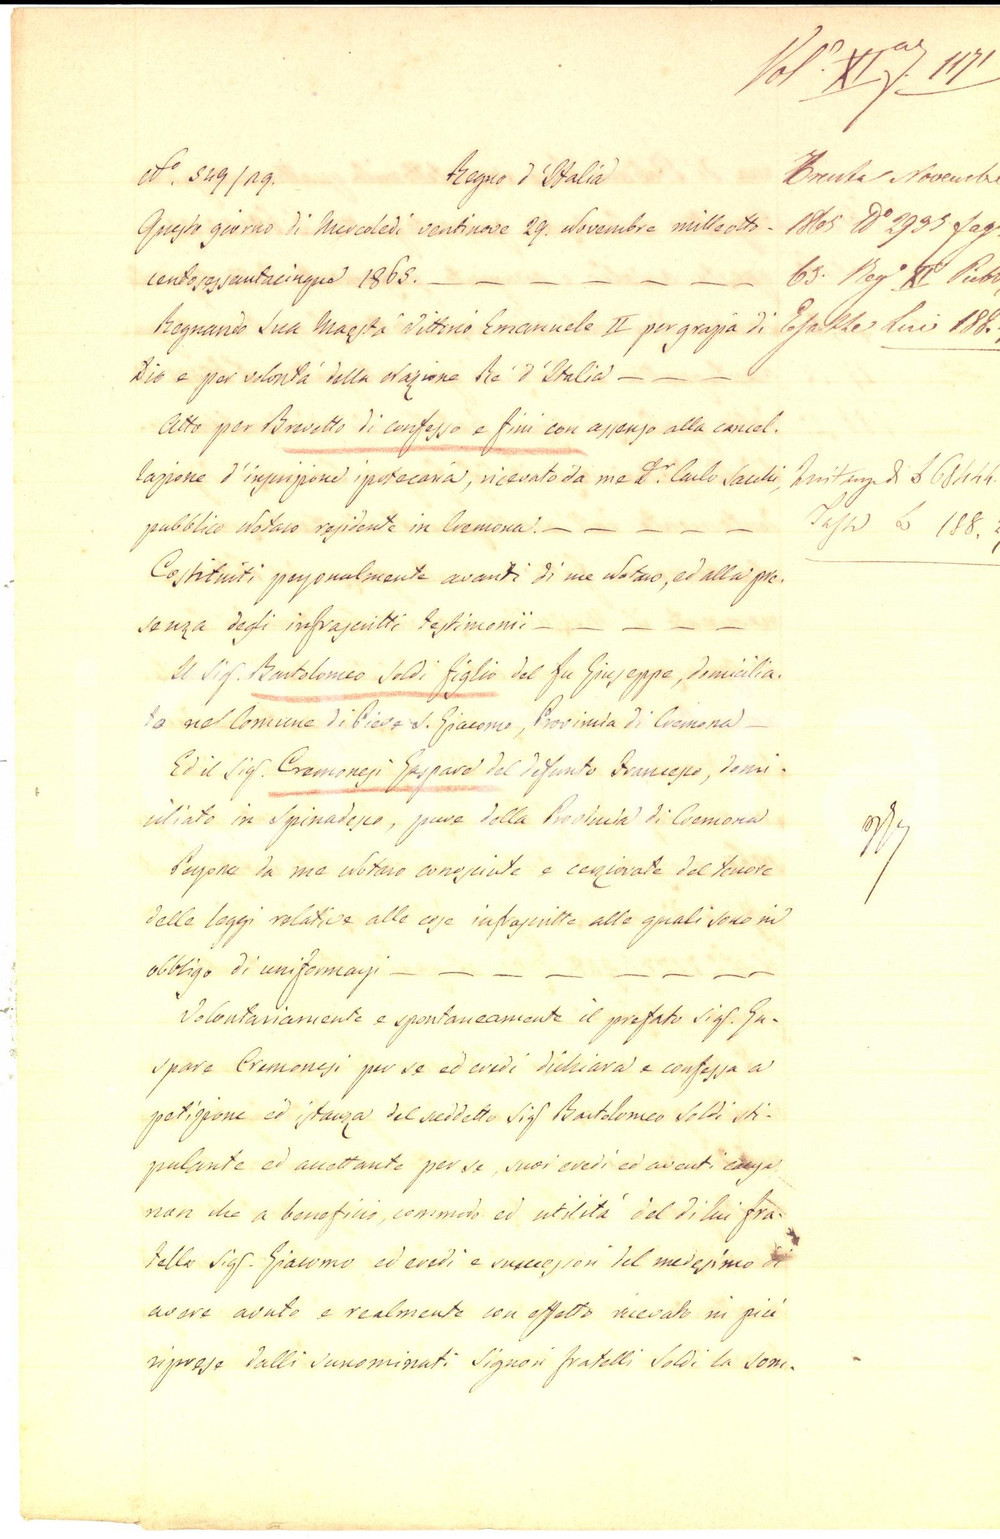 Vol.° XI ag. 1171
N.° 549/29. Regno d'Italia
Questo giorno di Mercoledì ventinove 29. Novembre milleotto-
centosessantacinque 1865.
Regnando Sua Maestà Vittorio Emanuele II per grazia di
Dio e per volontà della Nazione Re d'Italia
Atto per Brevetto di confesso e fini con assenso alla cancel-
lazione d'inscrizione ipotecaria, ricevuto da me D.r Carlo Sacchi,
pubblico Notaro residente in Cremona.
Costituiti personalmente avanti di me Notaro, ed alla pre-
senza degli infrascritti testimonii
Il Sig. Bartolomeo Soldi figlio del fu Giuseppe, domicilia-
to nel Comune di Pieve S. Giacomo, Provincia di Cremona
Ed il Sig. Cremonesi Gaspare del defunto Francesco, domi-
ciliato in Spinadesco, pure della Provincia di Cremona
Persone da me Notaro conosciute e cerziorate del tenore
delle leggi relative alle cose infrascritte alle quali sono in
obbligo di uniformarsi
Volontariamente e spontaneamente il prefato Sig. Ga-
spare Cremonesi per se ed eredi dichiara e confessa a
petizione ed istanza del suddetto Sig. Bartolomeo Soldi sti-
pulante ed accettante per se, suoi eredi ed aventi causa
non che a beneficio, commodo ed utilità del di lui fra-
tello Sig. Giacomo ed eredi e successori del medesimo di
avere avuto e realmente con effetto ricevuto in più
riprese dalli sunominati Signori fratelli Soldi la som-
Trenta Novembre
1865 N° 2935 fag.
65. Reg° XI Pubb.
Esatte Lire 188.
Quitanza di £ 68444.
Tassa £ 188.